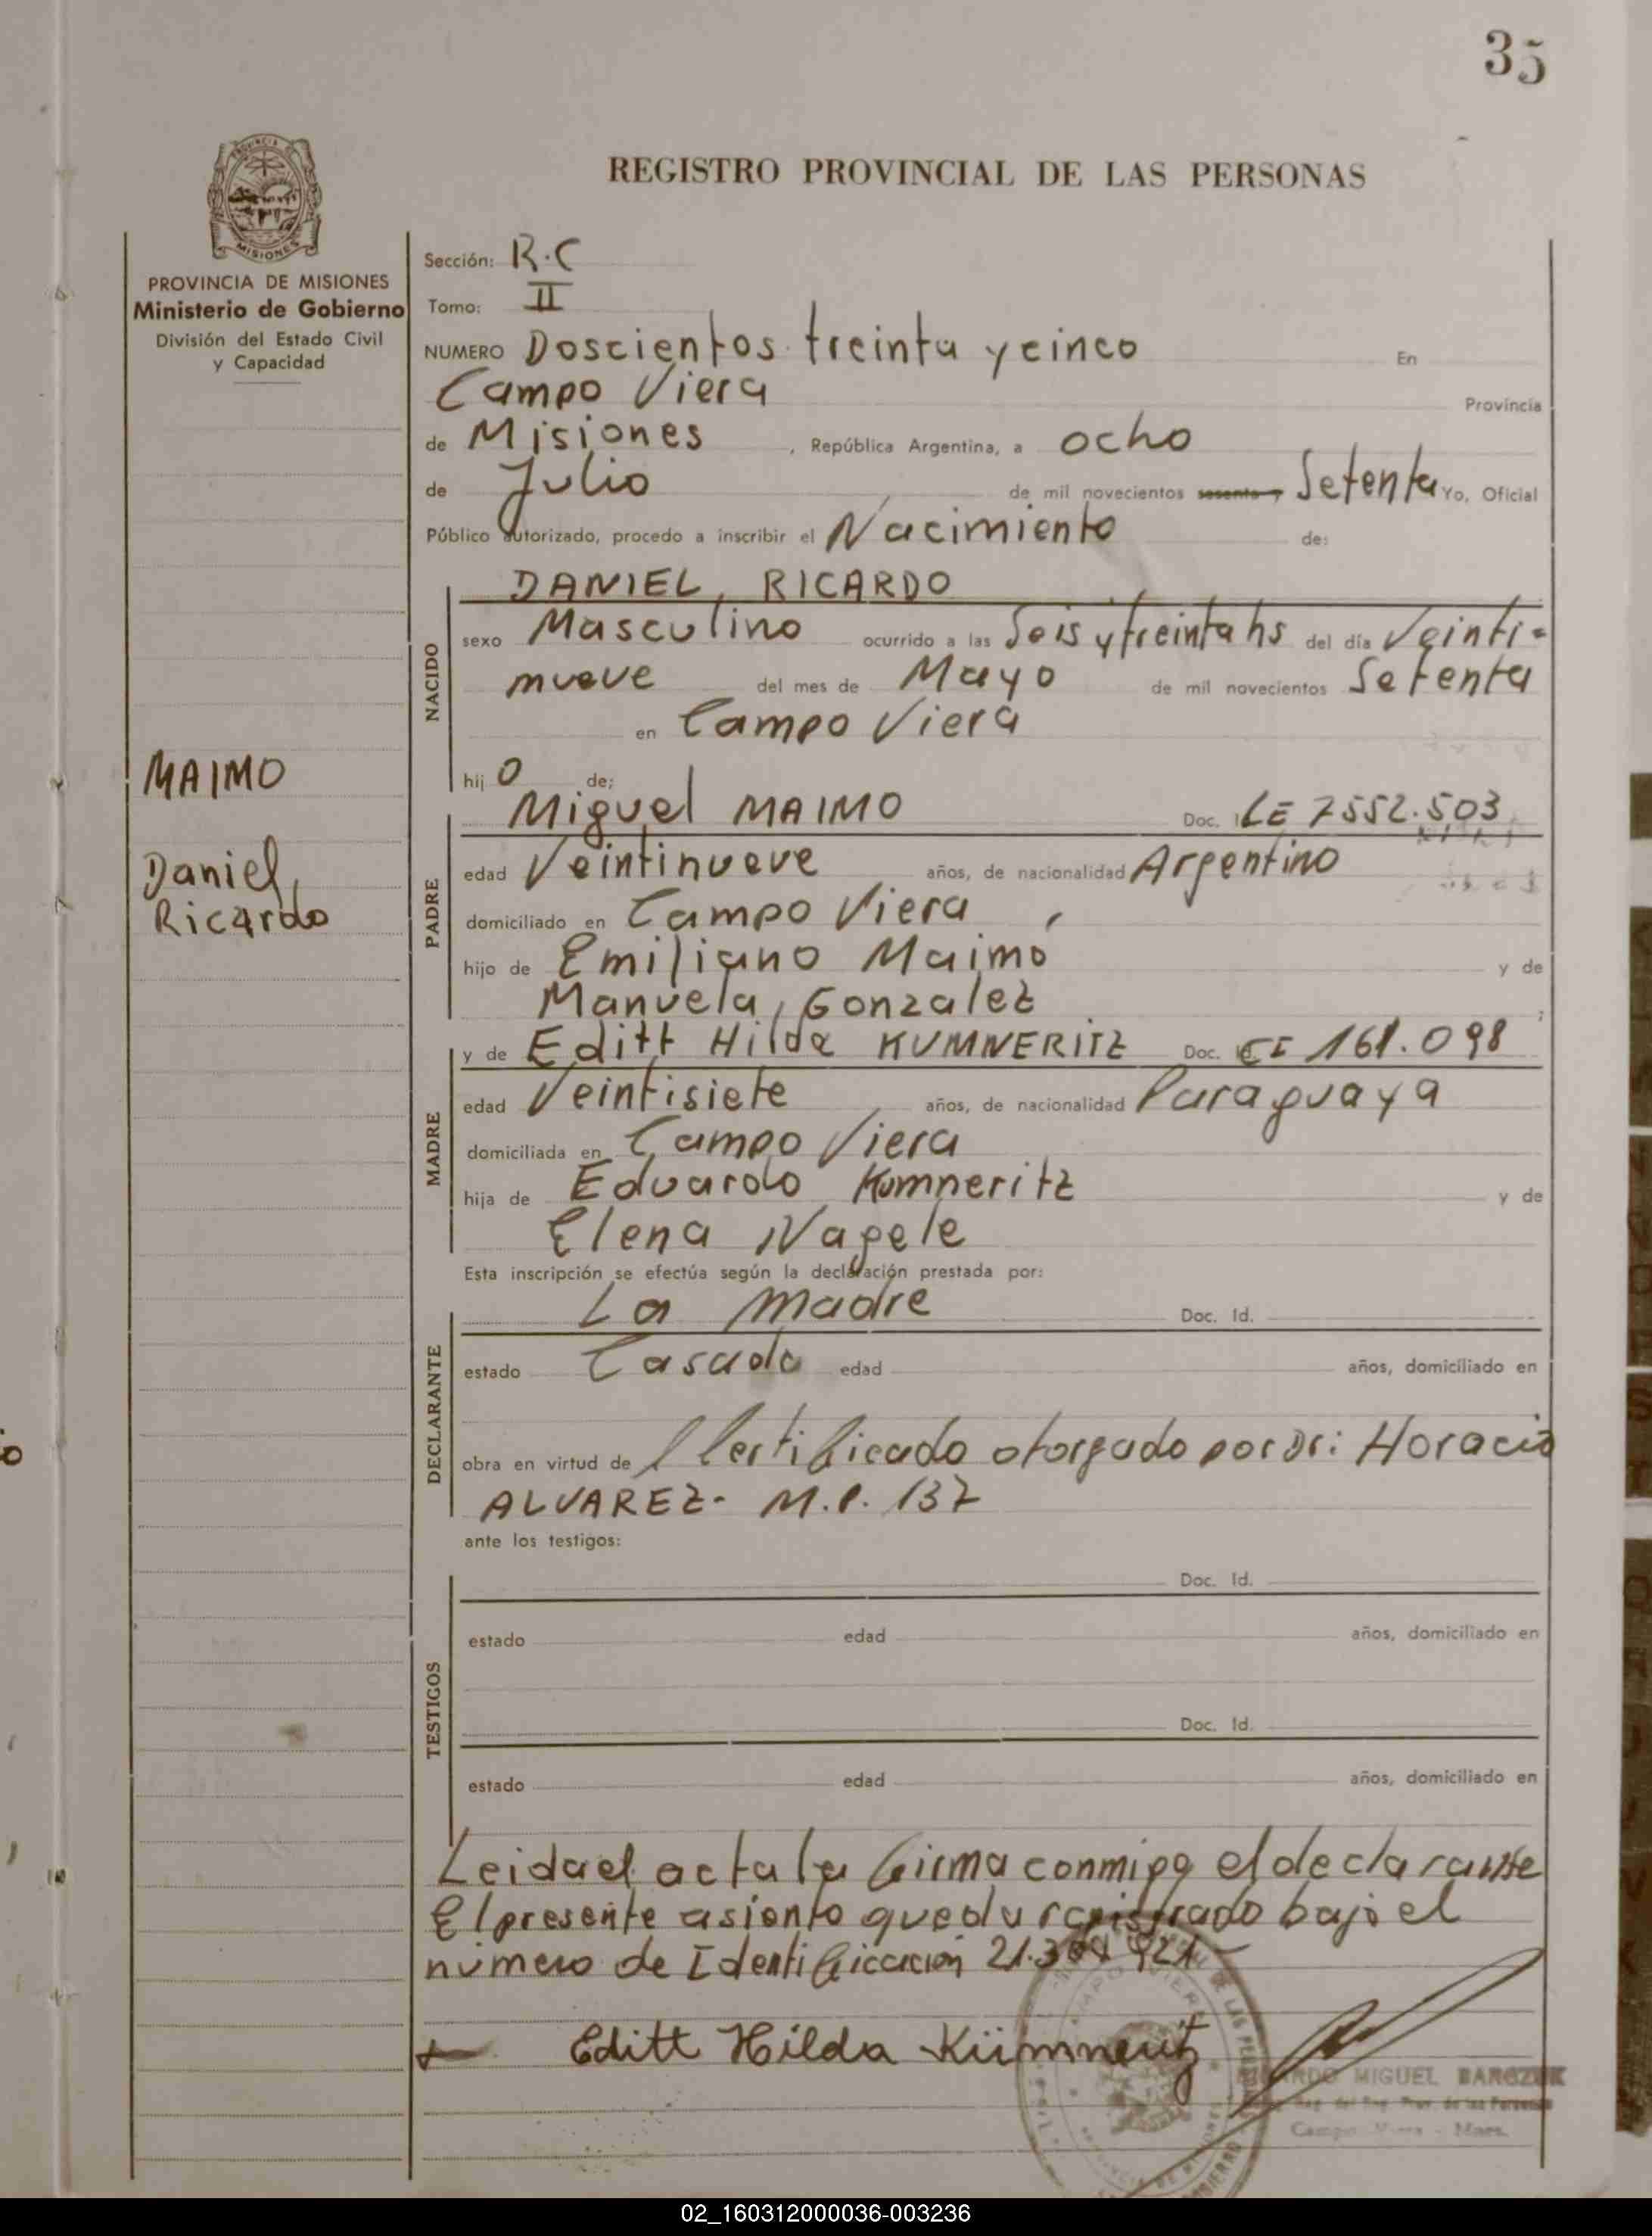 35
REGISTRO PROVINCIAL DE LAS PERSONAS
MISIONES
PROVINCIA DE MISIONES
Ministerio de Gobierno
División del Estado Civil
y Capacidad
MAIMO
Daniel,
Ricardo
Sección: R.C
Tomo: II
NUMERO Doscientos treinta y cinco En
Campo Viera Provincia
de Misiones , República Argentina, a ocho
de Julio de mil novecientos sesenta y Setenta Yo, Oficial
Público autorizado, procedo a inscribir el Nacimiento de:
NACIDO
DANIEL, RICARDO
sexo Masculino ocurrido a las Seis y treinta hs del día Veinti-
nueve del mes de Mayo de mil novecientos Setenta
en Campo Viera
hij o de;
PADRE
Miguel MAIMO Doc. LE 7552.503
edad Veintinueve años, de nacionalidad Argentino
domiciliado en Campo Viera ,
hijo de Emiliano Maimo y de
Manuela, Gonzalez ;
MADRE
y de Editt Hilda KUMNERITZ Doc. CI 161.098
edad Veintisiete años, de nacionalidad Paraguaya
domiciliada en Campo Viera
hija de Eduardo Kumneritz y de
Elena Nagele
Esta inscripción se efectúa según la declaración prestada por:
DECLARANTE
La madre Doc. Id.
estado Casada edad años, domiciliado en
obra en virtud de Certificado otorgado por Dr: Horacio
ALVAREZ- M.P. 137
ante los testigos:
TESTIGOS
Doc. Id.
estado edad años, domiciliado en
Doc. Id.
estado edad años, domiciliado en
Leida el acta la firma conmigo el declarante
El presente asiento queda registrado bajo el
número de Identificación
Editt Hilda Kümneritz
MIGUEL BARCZUK
02_160312000036-003236